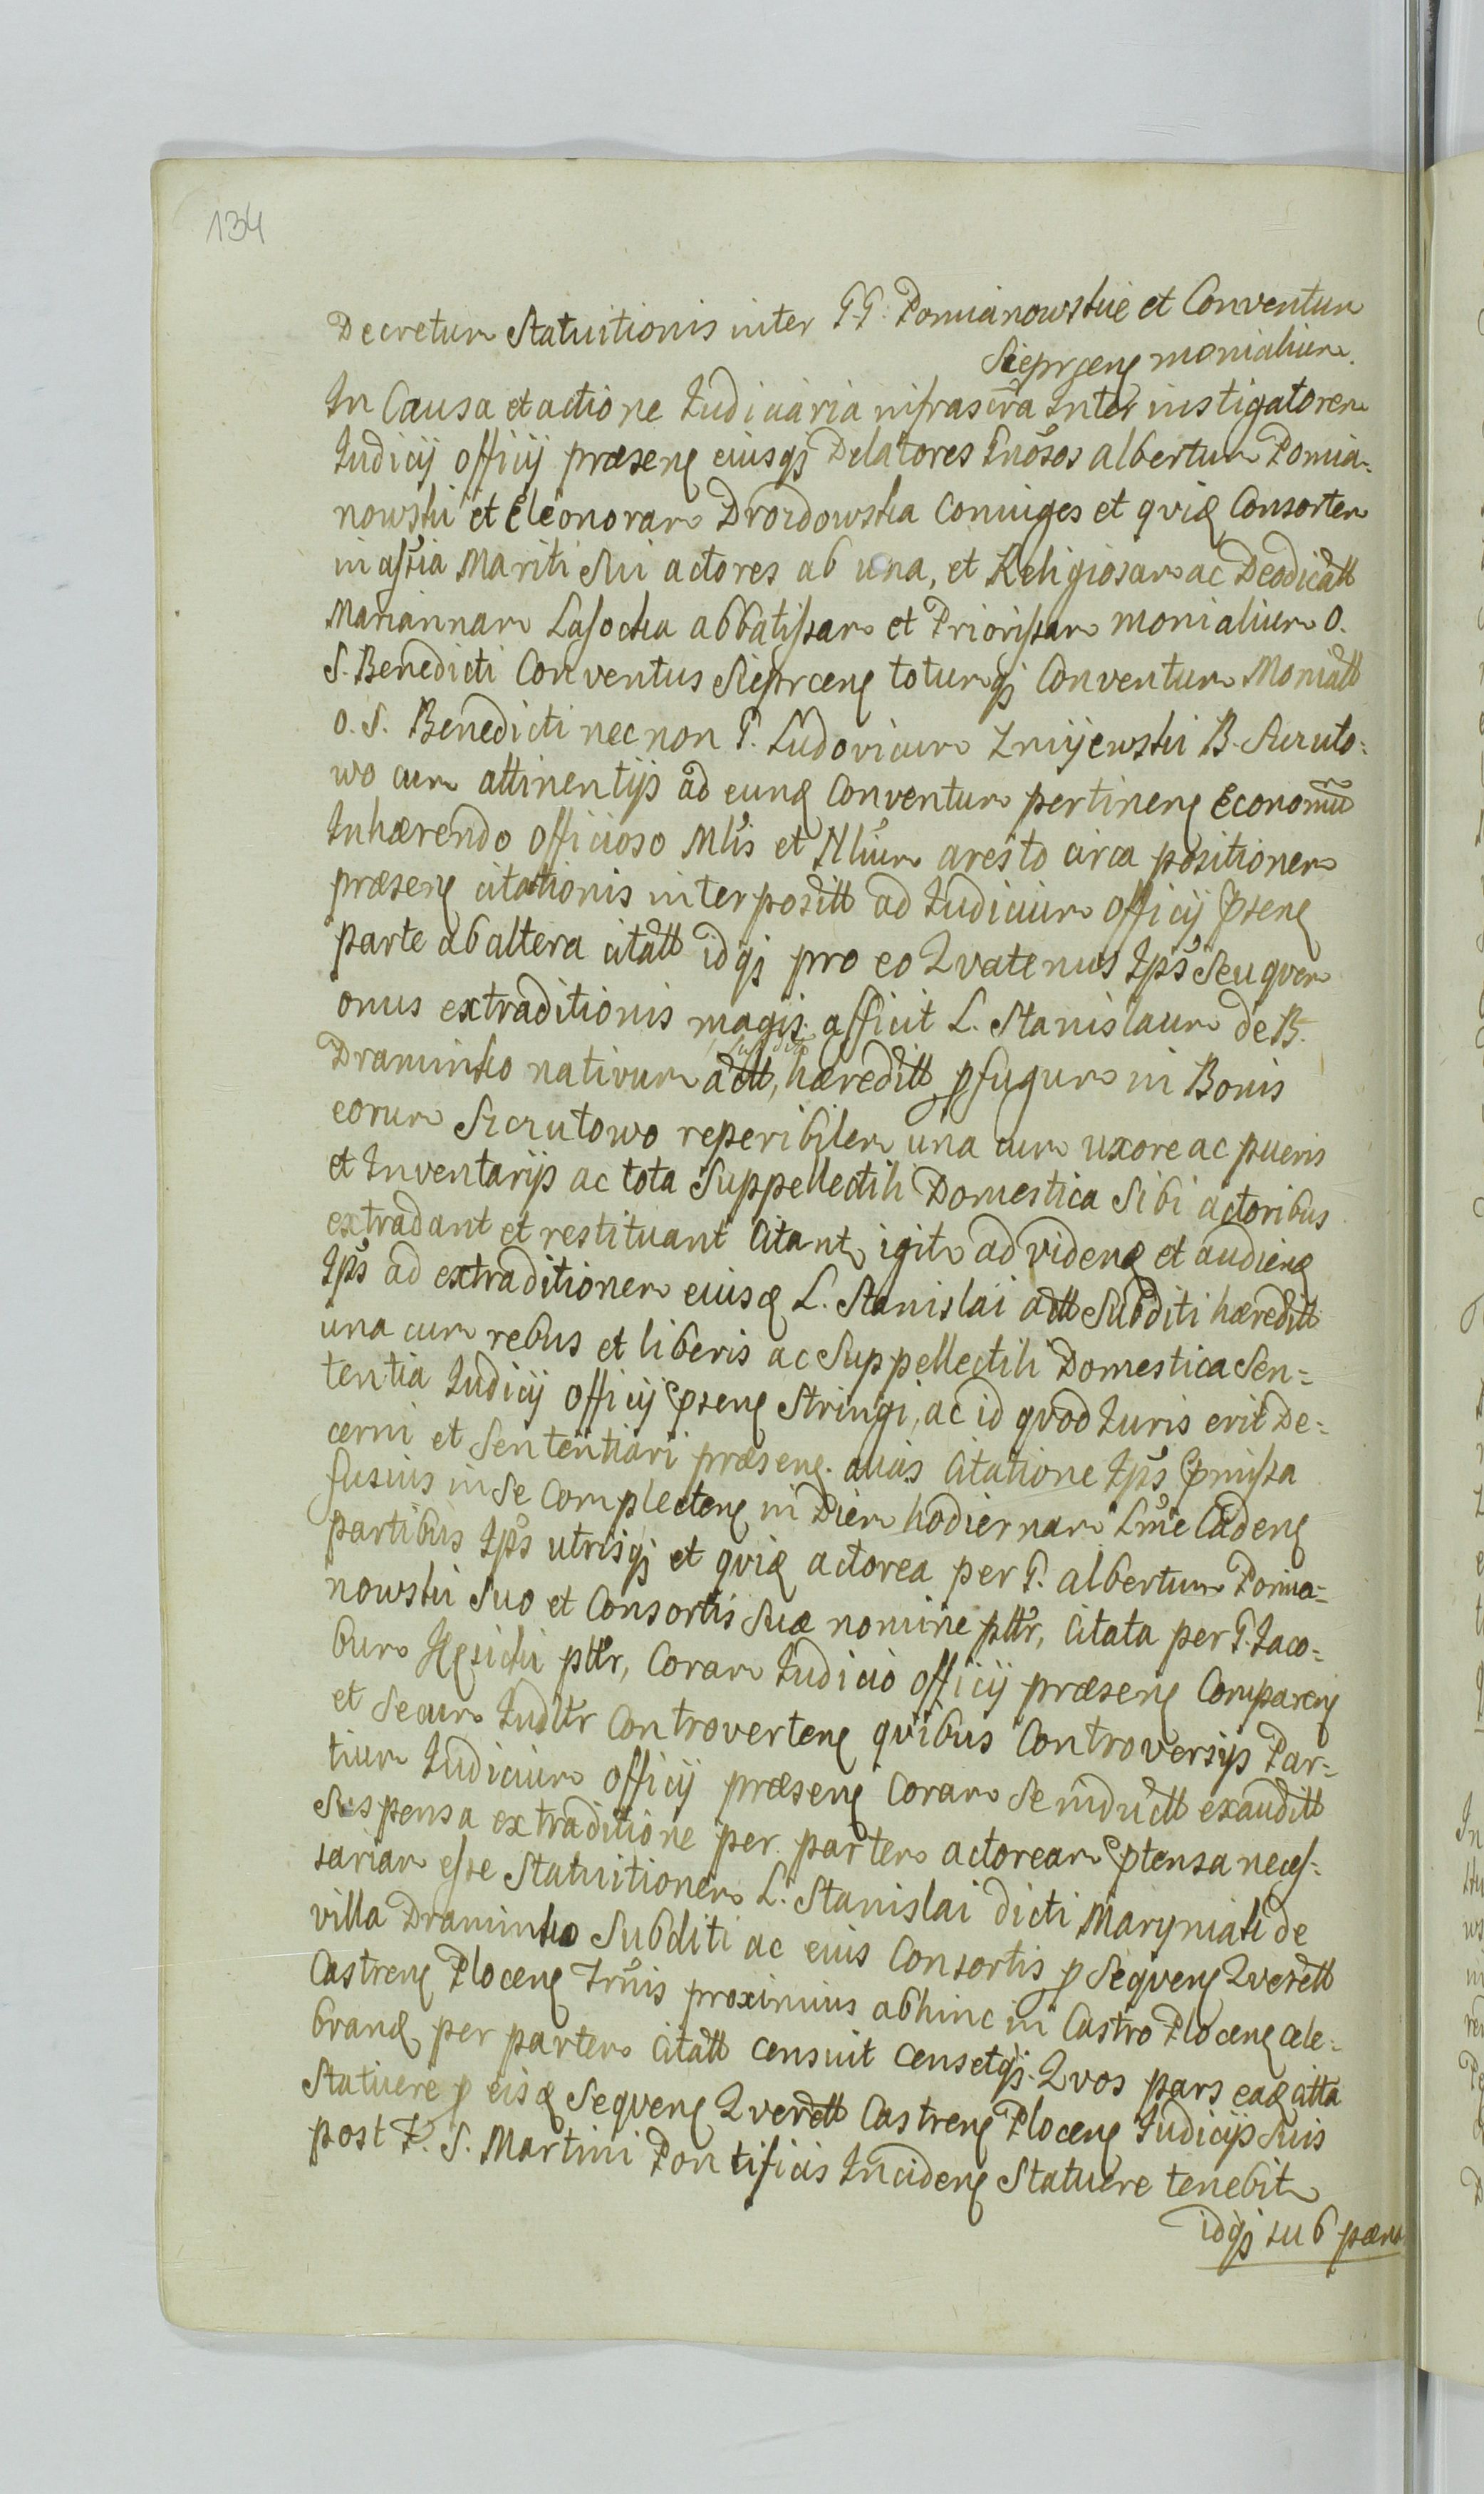 134
Decretum Statuitionis inter G.G. Pomianowskie et Conventum
Sieprcens monialium.
In Causa et actione Judiciaria infrascra Inter instigatorem
Judicij officij præsens eiusqz Delatores Gnosos albertum Pomia-
nowski et Eleonoram Drozdowska Coniuges et qvid Consortem
in assia Mariti sui actores ab una, et Religiosam ac Deodicatt
Mariannam Lasocka abbatissam et Priorissam monialium O.
S. Benedicti Conventus Sieprcens totumqz Conventum Moniatt
O. S. Benedicti nec non G. Ludovicum Zmijewski B. Szczuto-
wo cum attinentijs ad eund Conventum pertinens Economu
Inhærendo officioso Mlis et Nlium aresto circa positionem
præsens citationis interpositt ad Judicium officij Psens
parte ab altera citatt idqz pro eo Qvatenus Ips Seu qvem
onus extraditionis magis afficit L. Stanislaum de B.
Draminko nativum subditu
actt, hæreditt pfugum in Bonis
eorum Szczutowo reperibilem una cum uxore ac pueris
et Inventarijs ac tota Suppellectili Domestica Sibi actoribus
extradant et restituant Citant igitr ad vidend et audiend
Ips ad extraditionem eiusd L. Stanislai actt Subditi hæreditt
una cum rebus et liberis ac Suppellectili Domestica Sen-
tentia Judicij officij Psens Stringi, ac id qvod Juris erit De-
cerni et Sententiari præsens. alias Citatione Ips Pmissa
fusius in Se Complectens in Diem hodiernam Lme Cadens
partibus Ips utrisqz et qvid actorea per G. albertum Pomia-
nowski Suo et Consortis Suæ nomine pttr, Citata per G. Jaco-
bum pttr, Coram Judicio officij præsens Comparens
et Secum Judttr Controvertens qvibus Controversijs Par-
tium Judicium officij præsens Coram Se inductt exauditt
Suspensa extraditione per partem actoream Ptensa neces-
sariam esse Statuitionem L. Stanislai dicti Maryniak de
villa Draminko Subditi ac eius Consortis p Seqvens Qverett
Castrens Plocens Trnis proximius abhinc in Castro Plocens cele-
brand per partem Citatt censuit censetqz. Qvos pars ead citta
Statuere p eisd Seqvens Qverett Castrens Plocens Judicijs Suis
post F. S. Martini Pontificis Incidens Statuere tenebitr
idqz sub pæna